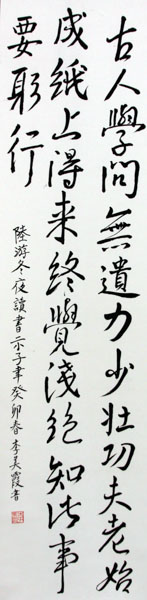 古人學問無遺力少壯功夫老始
成紙上得来終覺淺絕知此事
要躬行
陸游冬夜讀書示子聿癸卯春李美霞書